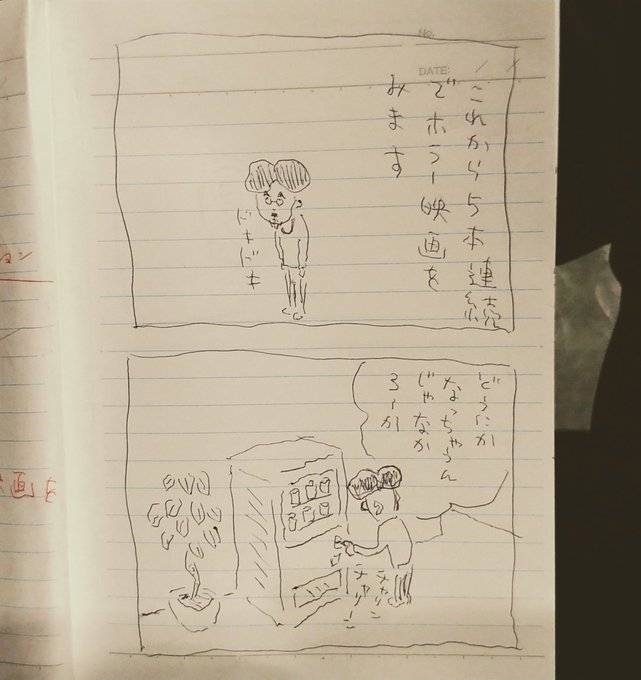 No.
DATE:
これから5本連続
でホラー映画を
みます
ドキドキ
どうにか
なっちゃうん
じゃなか
ろーか
チャリン
チャリーン
画を